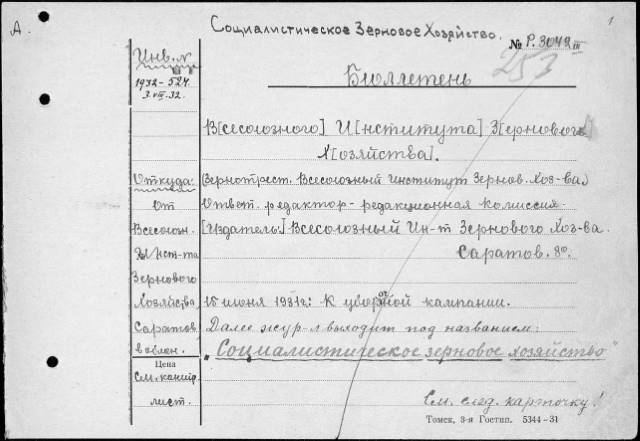 А.
Социалистическое Зерновое Хозяйство.
1
№ Р.3042 III
253
Инв. №
1932-524
3.VII.32.
Бюллетень
В[сесоюзного] И[нститута] З[ернового]
Х[озяйства].
Откуда:
От
Всесоюзн.
Инст-та
Зернового
Хозяйства
Саратов
в обмен.
Цена
См. канц.
лист.
(Зернотрест. Всесоюзный Институт Зернов. Хоз-ва)
Ответ. редактор - редакционная комиссия
[Издатель:] Всесоюзный Ин-т Зернового Хоз-ва.
Саратов. 8º.
15 июня 1931г.: К уборочной кампании.
Далее жур-л выходит под названием:
"Социалистическое зерновое хозяйство"
См. след. карточку!
Томск, 3-я Гостип. 5344-31